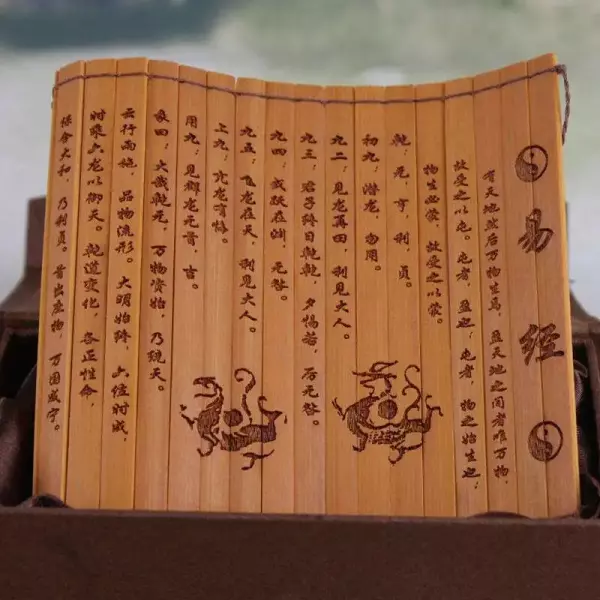 易经
有天地然后万物生焉，盈天地之间者唯万物，
故受之以屯。屯者，盈之，屯者，物之始生之；
物生必蒙，故受之以蒙。
乾，元，亨，利，贞。
初九，潜龙，勿用。
九二；见龙再田，利见大人。
九三，君子终日乾乾，夕惕若，厉无咎。
九四；或跃在渊，无咎。
九五；飞龙在天，利见大人。
上九；亢龙有悔。
用九；见群龙无首，吉。
彖曰；大哉乾元，万物资始，乃统天。
云行雨施，品物流形。大明始终，六位时成，
时乘六龙以御天。乾道变化，各正性命，
保合大和，乃利贞。首出庶物，万国咸宁。